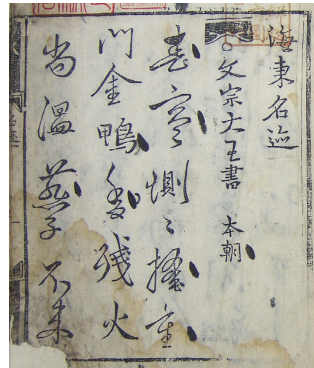 海東名迹
文宗大王書 本朝
春寒惻〻掩重
門金鴨香殘火
尚溫燕子不来